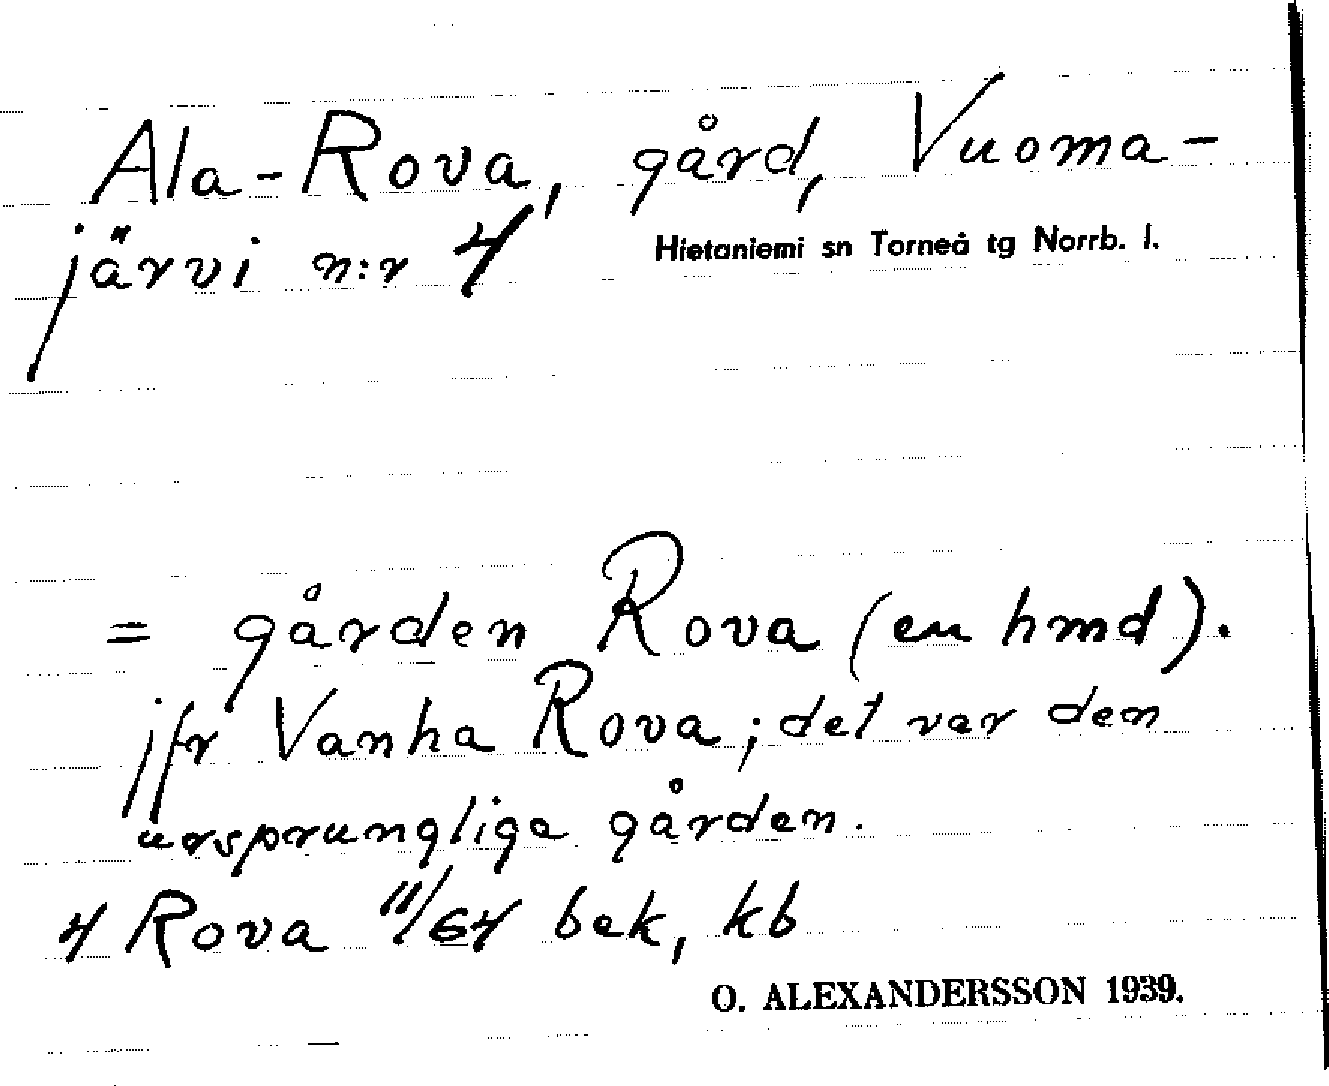 Ala-Rova, gård, Vuoma-
järvi n:r 4 Hietaniemi sn Torneå tg Norrb. l.
= gården Rova (en hmd).
jfr Vanha Rova; det var den
ursprunglige gården.
4 Rova 11/64 bek, kb
O. ALEXANDERSSON 1939.